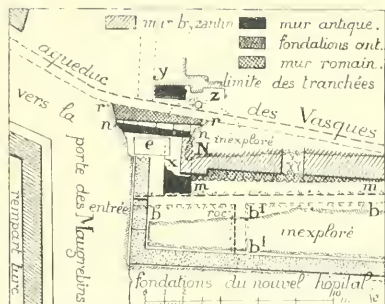 mur byzantin
mur antique.
fondations ant.
mur romain.
aqueduc
y
z
limite des tranchées
des Vasques
vers la porte des Maugrebins
r
r
n
n
e
N
inexploré
x
m
m
entrée
b
roc
b¹
b
b¹
inexploré
rempart turc
fondations du nouvel hôpital
10